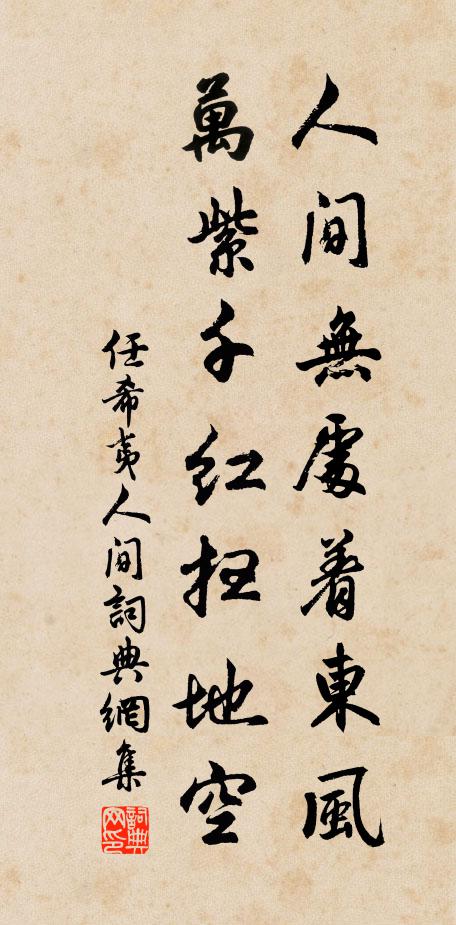 人間無處着東風
萬紫千紅掃地空
任希夷人间詞典網集
詞典网印